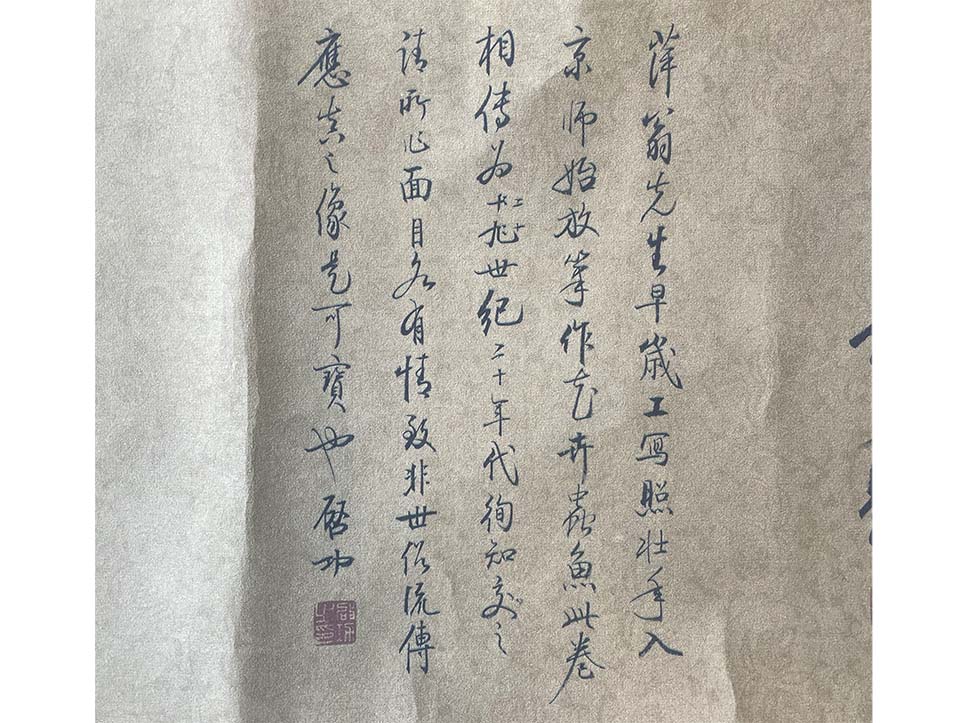 萍翁先生早歲工写照壮年入
京师始放筆作花卉蟲魚此卷
相传为二十世紀二十年代徇知交之
请所作面目各有情致非世俗流傳
應真之像是可寶也启功